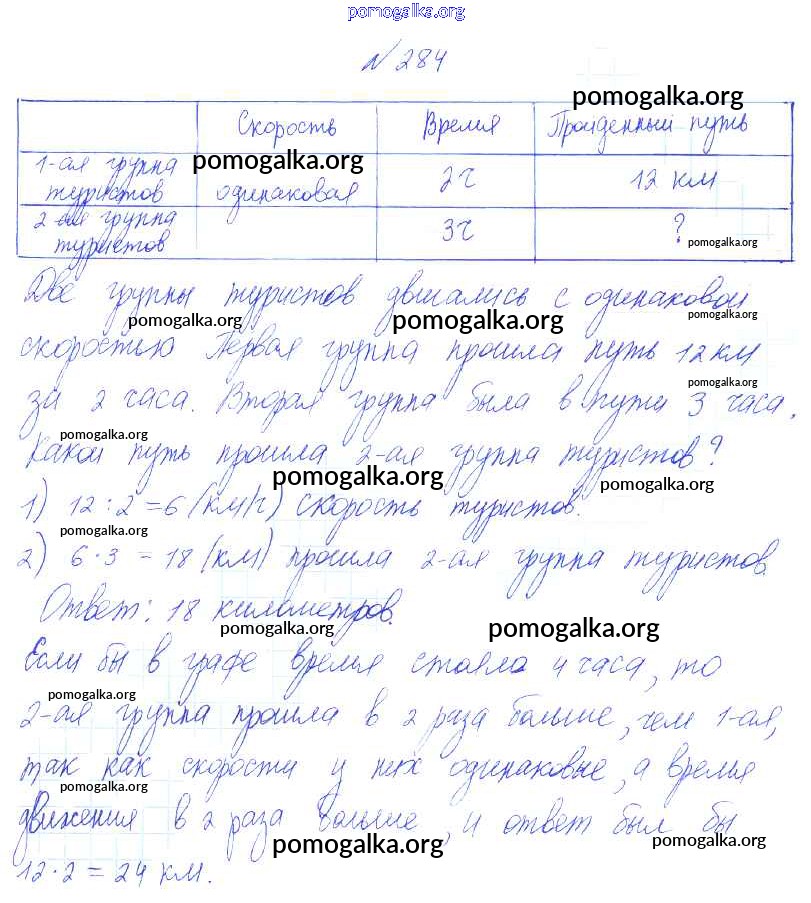 pomogalka.org
№ 284
pomogalka.org
Скорость Время Пройденный путь
1-ая группа туристов pomogalka.org одинаковая 2ч 12 км
2-ая группа туристов 3ч ?
pomogalka.org
Две группы туристов двигались с одинаковой
pomogalka.org pomogalka.org pomogalka.org
скоростью Первая группа прошла путь 12 км
pomogalka.org
за 2 часа. Вторая группа была в пути 3 часа.
pomogalka.org
Какой путь прошла 2-ая группа туристов?
pomogalka.org pomogalka.org
1) 12 : 2 = 6 (км/ч) скорость туристов.
pomogalka.org
2) 6 · 3 = 18 (км) прошла 2-ая группа туристов
Ответ: 18 километров.
pomogalka.org pomogalka.org
Если бы в графе время стояло 4 часа, то
pomogalka.org
2-ая группа прошла в 2 раза больше, чем 1-ая,
так как скорости у них одинаковые, а время
pomogalka.org
движения в 2 раза больше, и ответ был бы
pomogalka.org pomogalka.org
12 · 2 = 24 км.